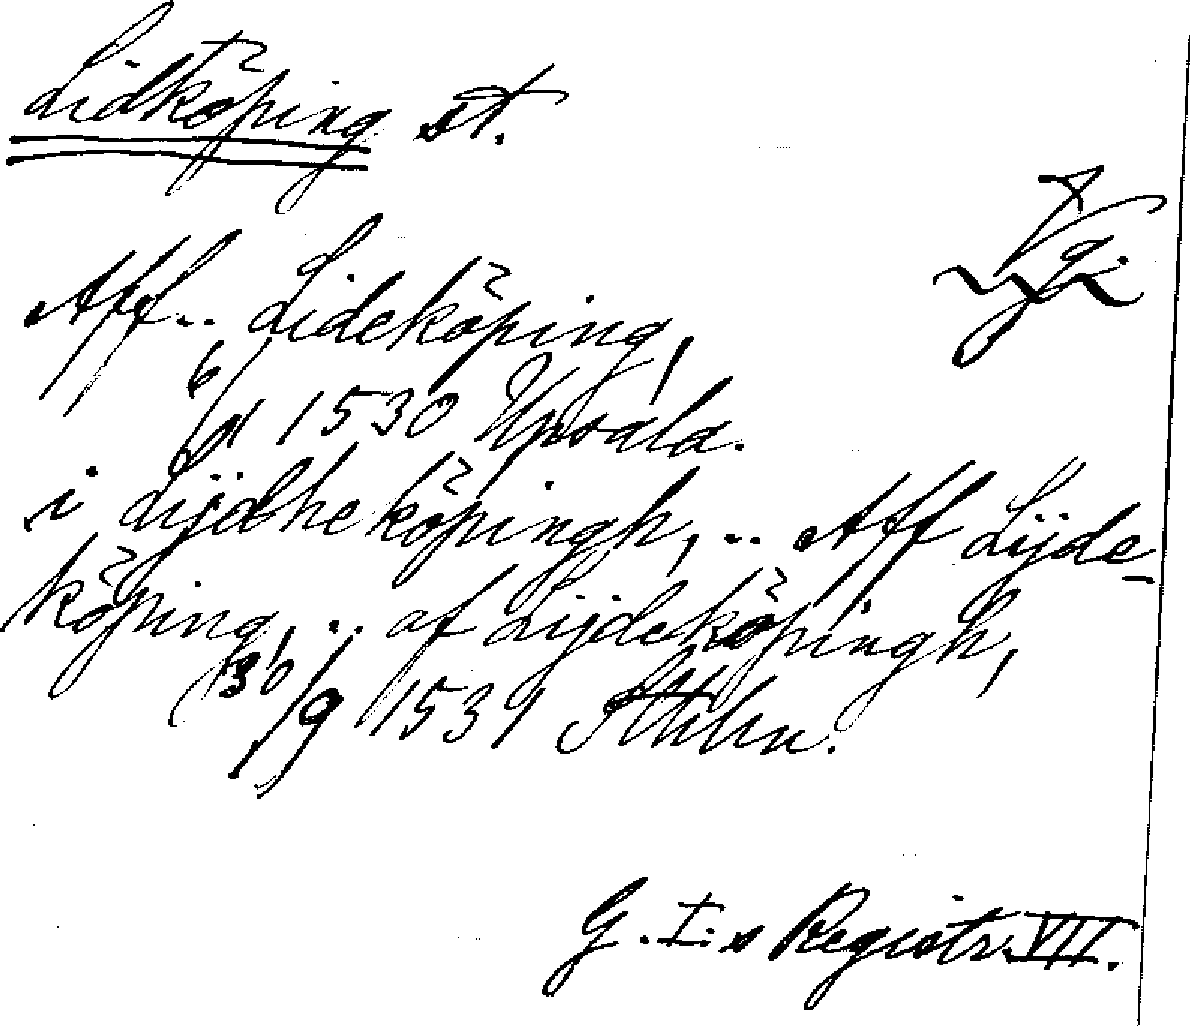 Lidköping st.
Vg.
Aff.. Lideköping,
1530 Upsala.
i Lijdheköpingh, .. Aff Lijde-
köping, .. af Lijdeköpingh,
30/9 1531 Sthlm.
G. I:s Registr. VII.